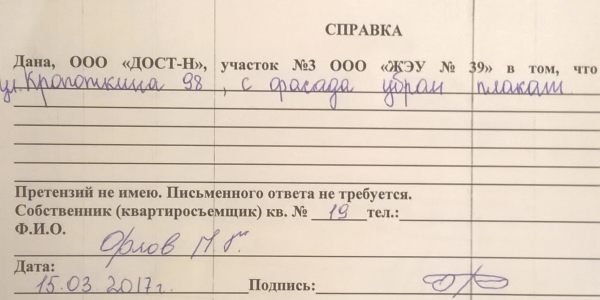 СПРАВКА
Дана, ООО «ДОСТ-Н», участок №3 ООО «ЖЭУ № 39» в том, что
ул. Кропоткина 98, с фасада убран плакат.
Претензий не имею. Письменного ответа не требуется.
Собственник (квартиросъемщик) кв. № 19 тел.:
Ф.И.О.
Орлов
Дата:
15.03.2017г. Подпись: